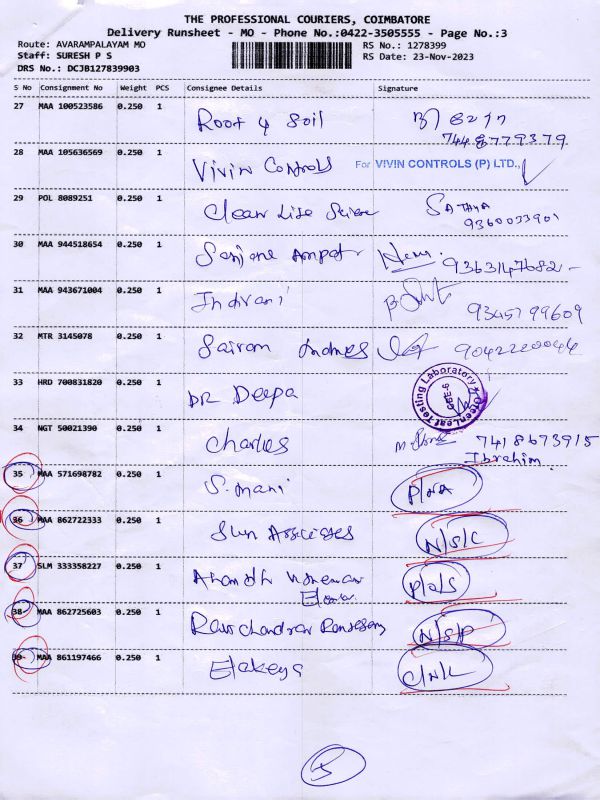 THE PROFESSIONAL COURIERS, COIMBATORE
Delivery Runsheet - MO - Phone No.:0422-3505555 - Page No.:3
Route: AVARAMPALAYAM MO RS No.: 1278399
Staff: SURESH P S RS Date: 23-Nov-2023
DRS No.: DCJB127839903
S No Consignment No Weight PCS Consignee Details Signature
27 MAA 100523586 0.250 1 Root & Soil
7448779379
28 MAA 105636569 0.250 1 Vivin Controls For VIVIN CONTROLS (P) LTD.,
29 POL 8089251 0.250 1 Clean Life SATHYA
9360033901
30 MAA 944518654 0.250 1 9363147682
31 MAA 943671004 0.250 1 Indrani 9345799609
32 MTR 3145078 0.250 1 Sairam 9042220044
33 HRD 700831820 0.250 1 DR Deepa GreenLeaf Testing Laboratory CBE-6
34 NGT 50021390 0.250 1 Charles 7418673915
Ibrahim
35 MAA 571698782 0.250 1 S. mani P/NA
36 MAA 862722333 0.250 1 Sun Associates N/S/C
37 SLM 333358227 0.250 1
38 MAA 862725603 0.250 1 N/S/P
39 MAA 861197466 0.250 1 Elakeya C/N/L
5